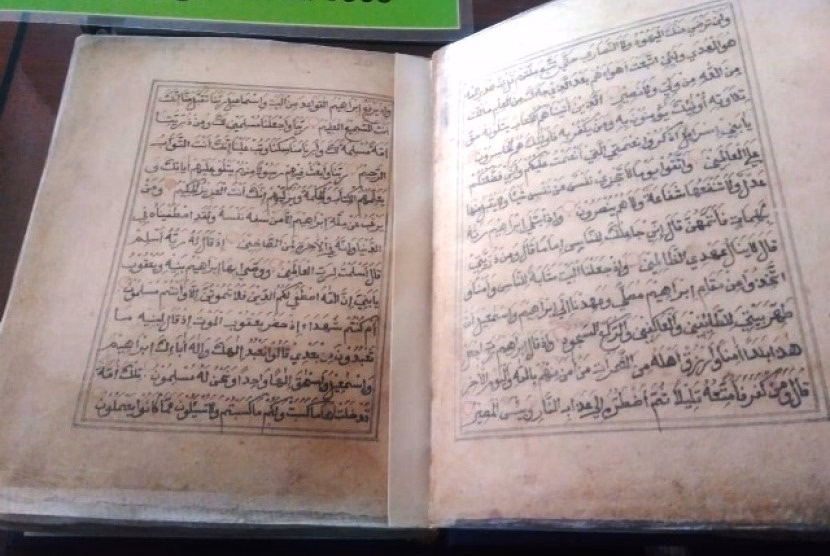 ولن ترضي عنك اليهود ولا النصارى حتي تتبع ملتهم قل ان هدي الله
هو الهدي ولئن اتبعت أهواءهم بعد الذي جاءك من العلم مالك
من الله من ولي ولا نصير الذين أتيناهم الكتاب يتلونه حق
تلاوته أولئك يؤمنون به ومن يكفر به فأولئك هم الخاسرون
يابني إسرائيل اذكروا نعمتي التي أنعمت عليكم وأني فضلتكم
علي العالمين واتقوا يوما لا تجزي نفس عن نفس شيئا ولا يقبل منها
عدل ولا تنفعها شفاعة ولا هم ينصرون وإذ ابتلي إبراهيم ربه
بكلمات فأتمهن قال إني جاعلك للناس إماما قال ومن ذريتي
قال لا ينال عهدي الظالمين وإذ جعلنا البيت مثابة للناس وأمنا و
اتخذوا من مقام إبراهيم مصلي وعهدنا إلي إبراهيم وإسمعيل أن
طهرا بيتي للطائفين والعاكفين والركع السجود وإذ قال إبراهيم رب اجعل
هذا بلدا أمنا وارزق أهله من الثمرات من أمن منهم بالله واليوم الأخر
قال ومن كفر فأمتعه قليلا ثم أضطره إلي عذاب النار وبئس المصير
وإذ يرفع إبراهيم القواعد من البيت وإسماعيل ربنا تقبل منا إنك
أنت السميع العليم ربنا واجعلنا مسلمين لك ومن ذريتنا
أمة مسلمة لك وأرنا مناسكنا وتب علينا إنك أنت التواب
الرحيم ربنا وابعث فيهم رسولا منهم يتلو عليهم أياتك و
يعلمهم الكتاب والحكمة ويزكيهم إنك أنت العزيز الحكيم ومن
يرغب عن ملة إبراهيم إلا من سفه نفسه ولقد اصطفيناه في
الدنيا وإنه في الأخرة لمن الصالحين إذ قال له ربه أسلم
قال أسلمت لرب العالمين ووصي بها إبراهيم بنيه ويعقوب
يابني إن الله اصطفي لكم الدين فلا تموتن إلا وأنتم مسلمون
أم كنتم شهداء إذ حضر يعقوب الموت إذ قال لبنيه ما
تعبدون من بعدي قالوا نعبد إلهك وإله أبائك إبراهيم
وإسمعيل وإسحق إلها واحدا ونحن له مسلمون تلك أمة
قد خلت لها ما كسبت ولكم ما كسبتم ولا تسئلون عما كانوا يعملون